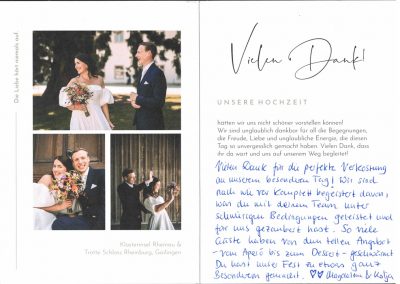 Die Liebe hört niemals auf.
Klosterinsel Rheinau &
Trotte Schloss Rheinburg, Gailingen
Vielen Dank!
UNSERE HOCHZEIT
hätten wir uns nicht schöner vorstellen können!
Wir sind unglaublich dankbar für all die Begegnungen,
die Freude, Liebe und unglaubliche Energie, die diesen
Tag so unvergesslich gemacht haben. Vielen Dank, dass
ihr da wart und uns auf unserem Weg begleitet!
Vielen Dank für die perfekte Verköstigung
an unserem besonderen Tag! Wir sind
nach wie vor komplett begeistert davon,
was du mit deinem Team unter
schwierigen Bedingungen geleistet und
für uns gezaubert hast. So viele
Gäste haben von dem tollen Angebot
- vom Apéro bis zum Dessert - geschwärmt
Du hast unser Fest zu etwas ganz
Besonderem gemacht. ♡♡ Magdalena & Kolja